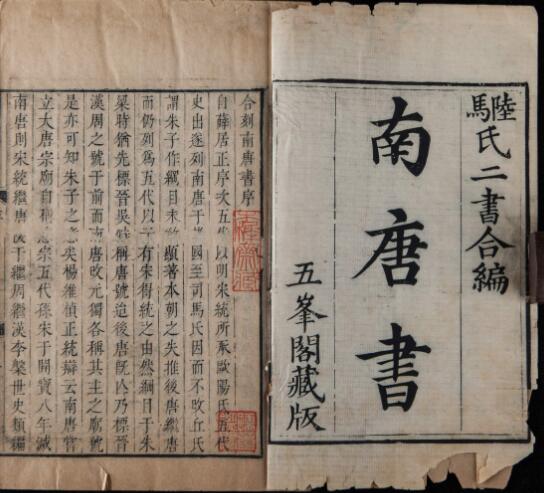 陸馬氏二書合編
南唐書
五峯閣藏版
合刻南唐書序
自薛居正序次五以明宋統所承歐陽氏五代
史出遂列南唐于國至司馬氏因而不改丘氏
謂朱子作綱目未敢顯著本朝之失推後唐繼唐
而仍列爲五代以予有宋得統之由然綱目于朱
梁時猶先標晉吳稱唐號迨後唐旣乃標晉
漢周之號于前而南唐改元獨各稱其主之廟號
是亦可知朱子之矣楊維楨正統辯云南唐嘗
立大唐宗廟自稱宗五代孫宋于開寶八年滅
南唐則宋統繼唐于繼周繼漢李槃世史類編